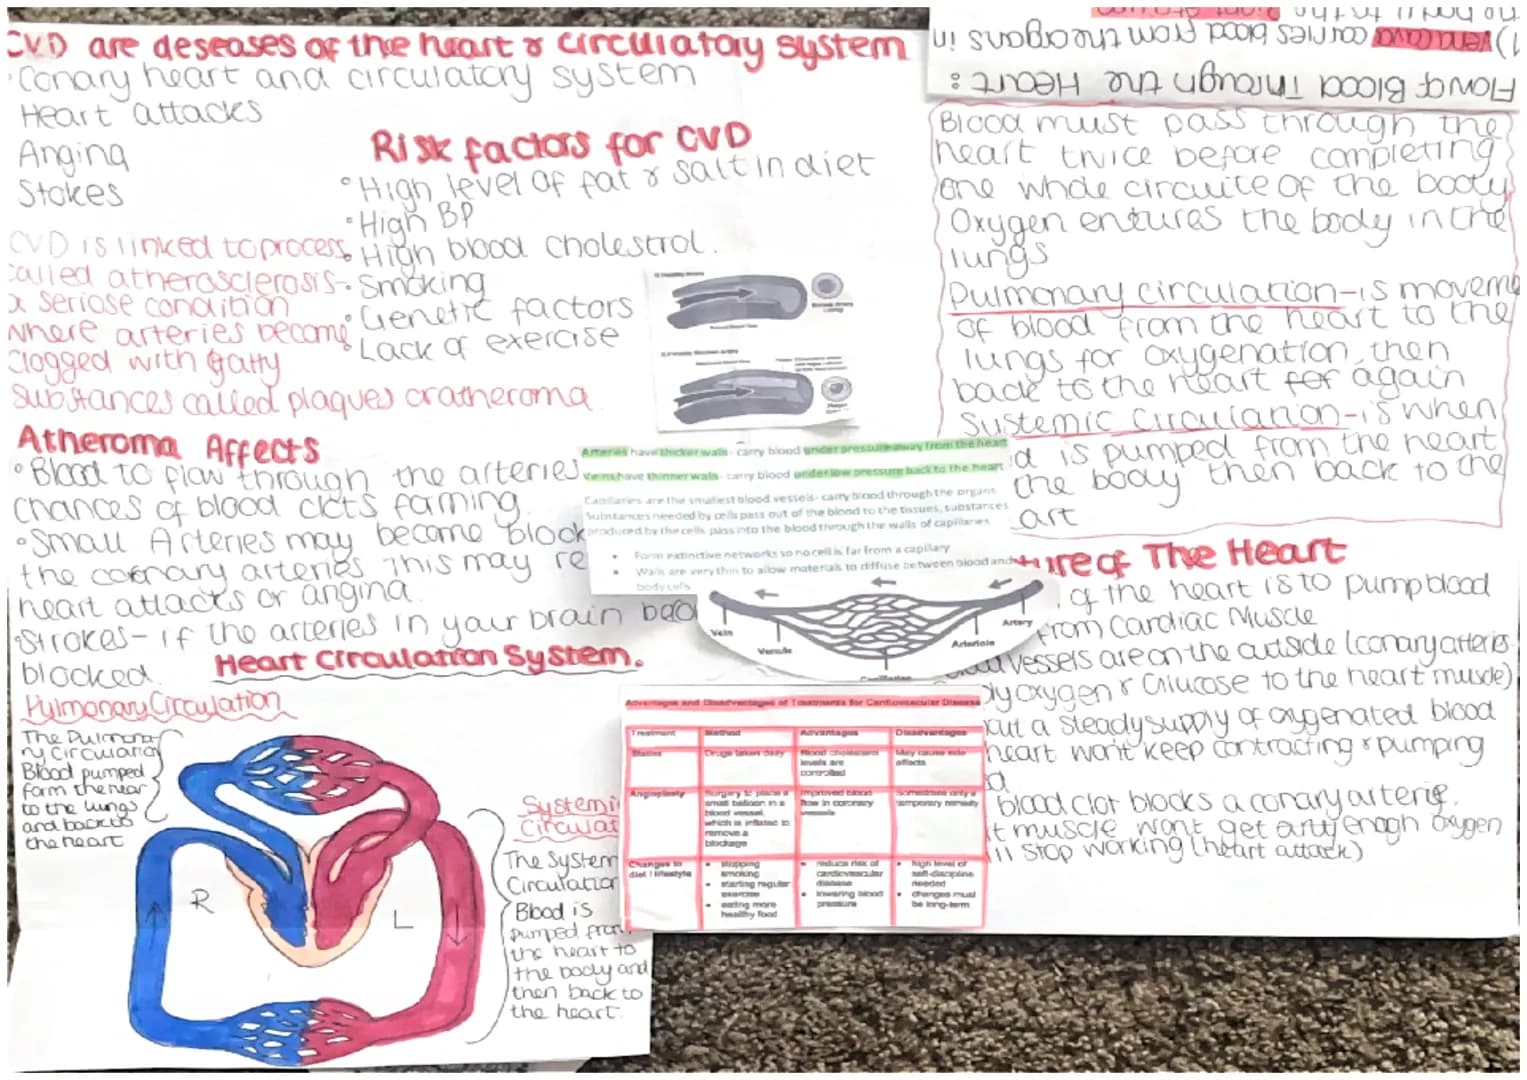 CVD are deseases of the heart & circulatory system
Conary heart and circulatory system
Heart attacks
Angina
Stokes
Risk factors for CVD
• High level of fat & salt in diet
• High BP
• High blood cholestrol.
• Smoking
• Genetic factors
• Lack of exercise
CVD is linked to process
called atherosclerosis-
a seriose condition
where arteries become
clogged with fatty
substances called plaques or atheroma.
Atheroma Affects
• Blood to flow through the arteries
chances of blood clots forming.
• Small Arteries may become block
the coronary arteries This may re
heart attacks or angina.
• Strokes - if the arteries in your brain beco
blocked.
Heart Circulation System.
Pulmonary Circulation
The Pulmona-
ry Circulation
Blood pumped
form the hear
to the lungs
and back to
the heart
R
L
Systemi
Circulat
The System
Circulation
Blood is
pumped from
the heart to
the body and
then back to
the heart.
Arteries have thicker walls - carry blood under pressure away from the heart
Veins have thinner walls - carry blood under low pressure back to the heart
Capillaries are the smallest blood vessels - carry blood through the organs
Substances needed by cells pass out of the blood to the tissues, substances
produced by the cells pass into the blood through the walls of capillaries
• Form extinctive networks so no cell is far from a capillary
• Walls are very thin to allow materials to diffuse between blood and
body cells
Vein
Venule
Arteriole
Artery
Advantages and Disadvantages of Treatments for Cardiovascular Disease
Treatment Method Advantages Disadvantages
Statins Drugs taken daily Blood cholesterol levels are controlled May cause side affects.
Angioplasty Surgery to place a small balloon in a blood vessel, which is inflated to remove a blockage Improved blood flow in coronary vessels Sometimes only a temporary remedy
Changes to diet / lifestyle • stopping smoking • starting regular exercise • eating more healthy food • reduce risk of cardiovascular disease • lowering blood pressure • high level of self-discipline needed • changes must be long-term
Flow of Blood Through the Heart:
1) vena cava carries blood from the organs in
the body to the right
Blood must pass through the
heart twice before completing
one whole circuite of the body
Oxygen entures the body in the
lungs
Pulmonary circulation - is moveme
of blood from the heart to the
lungs for oxygenation, then
back to the heart for again
Systemic Circulation - is when
d is pumped from the heart
the body then back to the
art
ture of The Heart
of the heart is to pump blood
from Cardiac Muscle
vessels are on the outside (conary arteries
ly oxygen & Glucose to the heart muscle)
out a steady supply of oxygenated blood
heart won't keep contracting & pumping
blood clot blocks a conary arterie.
t muscle wont get any enogh oxygen
ll stop working (heart attack)